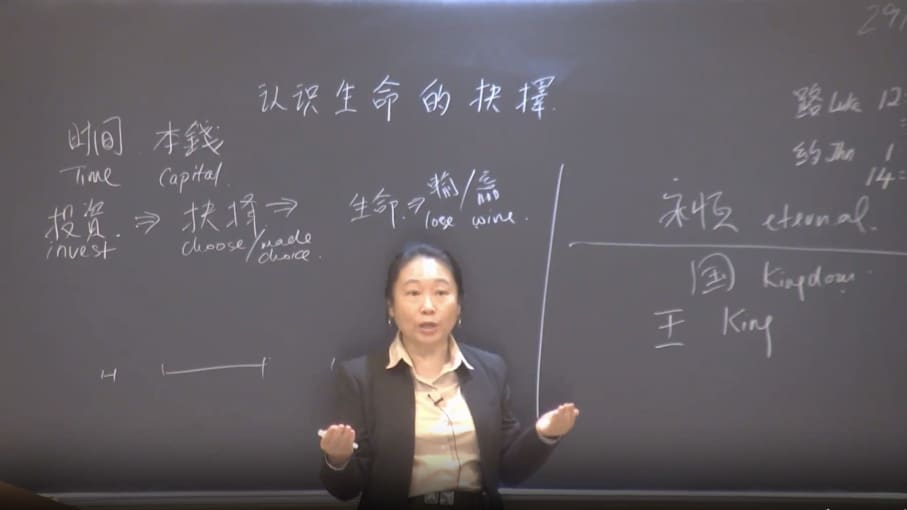 认识生命的抉擇
时间 本錢
Time Capital
投资 ⇒ 抉择 ⇒ 生命 ⇒ 輸/赢
invest choose/made choice. lose wine.
路 Luke 12:
约 Jhn 1
14:
永恒 eternal.
国 Kingdom
王 King